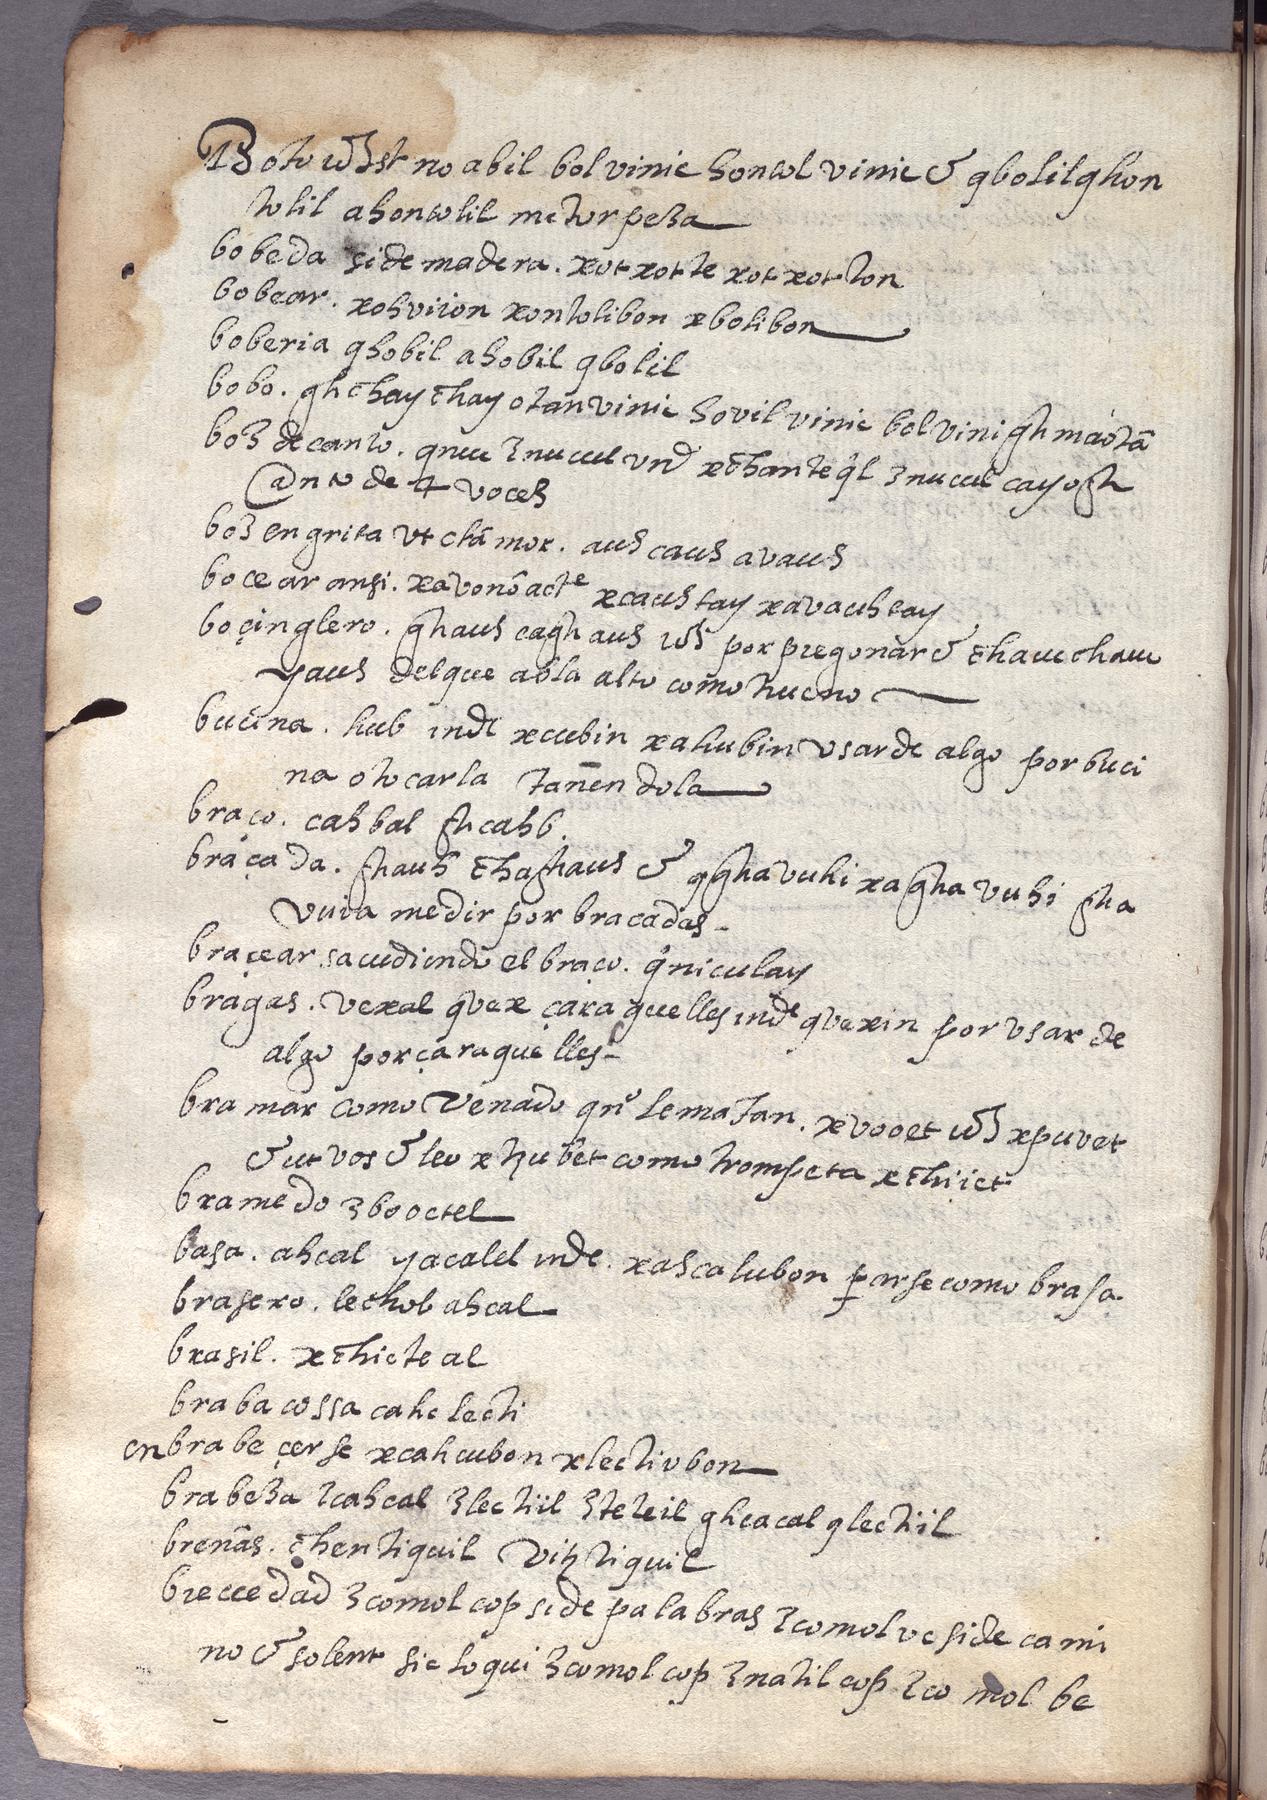 Boto vl est no abil bol vinic hontol vinic & qbolil ghon
tolil ahontolil me torpeza
bobeda si de madera. xot xot te xot xot ton
bobear. xohviion xontolibon xbolibon
boberia ghobil ahobil qbolil
bobo. gh chay chay otan vinic hovil vinic bol vinigh maotã
boz de canto. 
canto de 4 voces
boz en grita vt clãmor. auh cauh avauh
bocear ansi. xavonõ acte xcauhtay xavauhtay
boçinglero. ghauh caghauh vl por pregonar & chauc chauc
yauh del que abla alto como trueno
bucina. hub inde xcubin xahubin vsar de algo por buci
na o tocarla tañendola
braço. cahbal ghcahb.
braçada. ghauh chaghauh & qghavuhi xaghavuhi gha
vuia medir por bracadas
braçear sacudiendo el braço. qniculay
bragas. vexal qvex çaraguelles inde qvexin por vsar de
algo por çaraguelles
bramar como venado qnº le matan. xvooet vl xpuvet
& ut vos & leo xtzubet como trompeta xchiiet
bramedo zbooctel
basa. ahcal yacalel inde. xascalubon parse como brasa
brasero. lechob ahcal
brasil. xchicte al
braba cossa cahc lecti
enbrabeçerse xcahcubon xlectiubon
brabeza zcahcal zlectiil zteteil ghcacal qlectiil
breñas. chentiquil vitztiquil
breuedad zcomol cop si de palabras zcomol ve si de cami
no & solent sic loqui zcomol cop znatil cop zcomol be